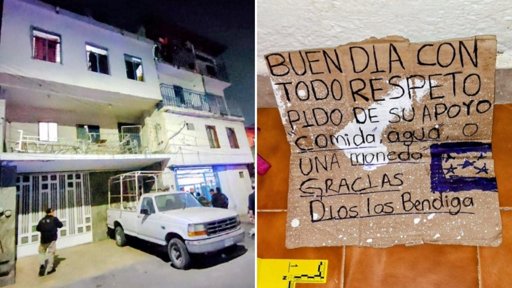 BUEN DIA CON
TODO RESPETO
PIDO DE SU APOYO
Comida agua O
UNA moneda
GRACIAS
Dios los Bendiga